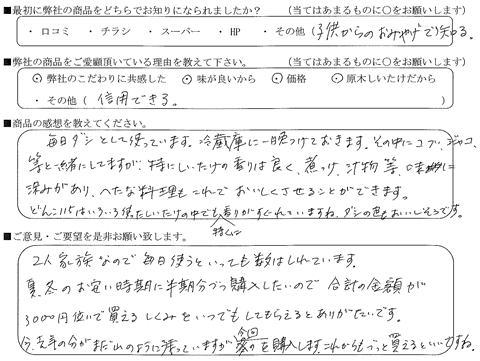 ■最初に弊社の商品をどちらでお知りになられましたか? (当てはまるものに○をお願いします)
・ 口コミ ・ チラシ ・ スーパー ・ HP ・ その他 (子供からのおみやげで)知る。
■弊社の商品をご愛顧頂いている理由を教えて下さい。 (当てはまるものに○をお願いします)
⊙ 弊社のこだわりに共感した ⊙ 味が良いから ⊙ 価格 ⊙ 原木しいたけだから
・ その他 ( 信用できる。 )
■商品の感想を教えてください。
毎日ダシとして使っています。冷蔵庫に一晩つけておきます。その中にコブ、ジャコ、
等と一緒にしてますが、特にしいたけの香りは良く、煮つけ、汁物 等、に
深みがあり、へたな料理もこれでおいしくさせることができます。
どんこはいろいろ使たしいたけの中でも特に香りがすぐれていますね。ダシの色もおいしそうです。
■ご意見・ご要望を是非お願い致します。
2人家族なので毎日使うといっても数はしれています。
夏、冬のお安い時期に半期分づつ購入したいので 合計の金額が
3000円位いで買えるしくみをいつでもしてもらえるとありがたいです。
今、去年の分がまだ山のように残っていますが今回を購入します。これからもずっと買えるといいですね。